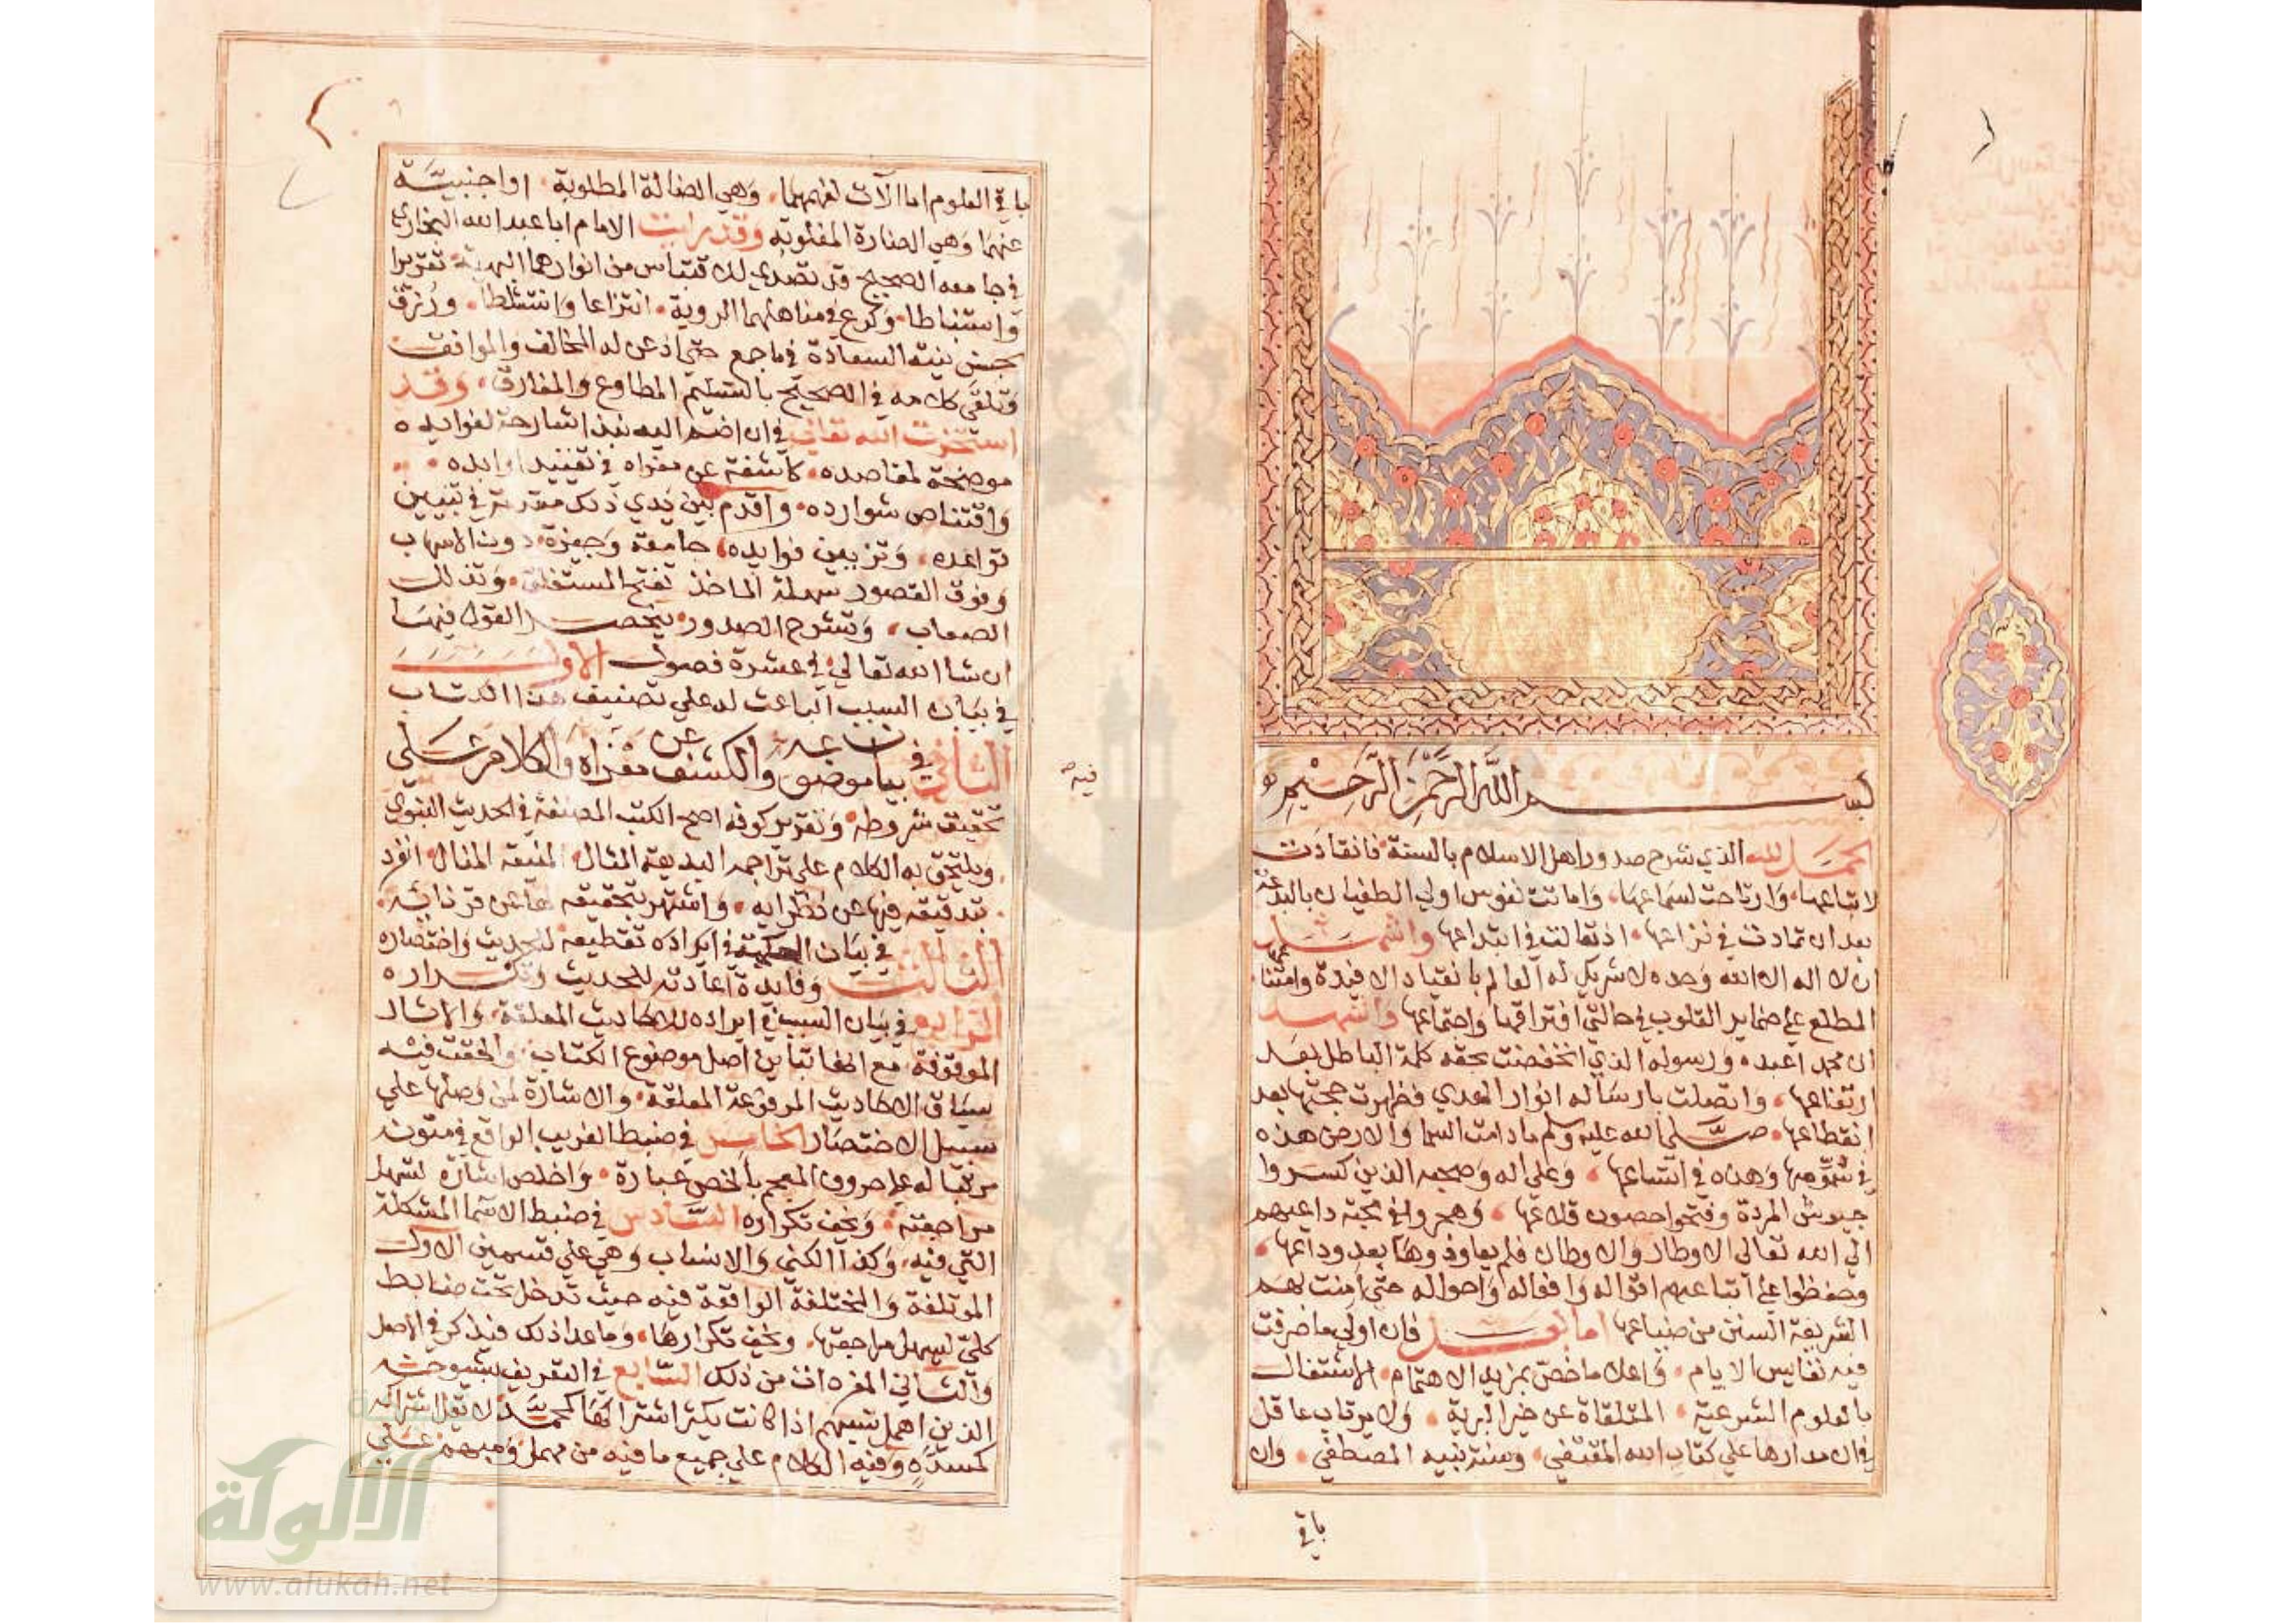 بســـم الله الرحمن الرحيم
الحمد لله الذي شرح صدور اهل الاسلام بالسنة فانقادت
لاتباعها وارتاحت لسماعها، واماتت نفوس اولي الطغيان بالبدعة
بعد ان تمادت في نزاعها، اذ تغالت في ابتداعها واشهد
ان لا اله الا الله وحده لا شريك له العالم بانقياد الافئدة وامتناعها
المطلع على ضماير القلوب في حالتي افتراقها واجتماعها واشهد
ان محمدا عبده ورسوله الذي انخفضت بحقه كلمة الباطل بعد
ارتفاعها، واتصلت بارساله انوار الهدي فظهرت حجتها بعد
انقطاعها، صلى الله عليه وسلم ما دامت السما والارض هذه
في سموها وهذه في اتساعها، وعلى اله وصحبه الذين كسروا
جيوش المردة وفتحوا حصون قلاعها، وهجروا في محبة داعيهم
الي الله تعالى الاوطار والاوطان فلم يعاودوها بعد وداعها،
وحفظوا على اتباعهم اقواله وافعاله واحواله حتى امنت بهم
الشريعة السنن من ضياعها اما بعـــد فان اولى ما صرفت
فيه نفايس الايام، واعلا ما خص بمزيد الاهتمام، الاشتغال
بالعلوم الشرعية، المتلقاة عن خير البرية، ولا يرتاب عاقل
في ان مدارها علي كتاب الله المقتفي، وسنة نبيه المصطفي، وان
باقي
باقي العلوم اما الآت لفهمهما، وهي الضالة المطلوبة، او اجنبيـة
عنهما وهي الضارة المغلوبة وقد رايت الامام ابا عبد الله البخاري
في جامعه الصحيح قد تصدي للاقتباس من انوارهما البهية تقريرا
واستنباطا، وكرع في مناهلهما الروية، انتزاعا وانتشاطا، ورزق
بحسن نيته السعادة فيما جمع حتى اذعن له المخالف والموافق
وتلقى كلامه في الصحيح بالتسليم المطاوع والمفارق، وقد
استخرت الله تعالي في ان اضم اليه نبذا شارحة لفوايده
موضحة لمقاصده، كاشفة عن مغزاه في تقييد اوابده،
واقتناص شوارده، واقدم بين يدي ذلك مقدمة في تبيين
قواعده، وتزيين فوايده، جامعة وجيزة، دون الاسهاب
وفوق القصور سهلة الماخذ تفتح المستغلق، وتذلل
الصعاب، وتشرح الصدور، ينحصر القول فيها
ان شا الله تعالي في عشرة فصول الاول
في بيان السبب الباعث له علي تصنيف هذا الكتاب
الثاني في بيان موضوعه والكشف عن مغزاه والكلام علي
فيه
تحقيق شروطه، وتقرير كونه اصح الكتب المصنفة في الحديث النبوي
ويلتحق به الكلام على تراجمه البديعة المثال، المنيعة المنال، انفرد
بتدقيقه فيها عن نظرايه، واشتهر بتحقيقه لها عن قرنائه،
الثالث في بيان الحكمة في ايراده تقطيعه للحديث واختصاره
وفايدة اعادته للحديث وتكراره
الرابع في بيان السبب في ايراده للاحاديث المعلقة، والاثار
الموقوفة مع انها تباين اصل موضوع الكتاب، والحقت فيه
سياق الاحاديث المرفوعة المعلقة، والاشارة لمن وصلها علي
سبيل الاختصار الخامس في ضبط الغريب الواقع في متونه
مرتبا له على حروف المعجم بالخص عبارة، واخلص اشارة لتسهل
مراجعته، ويخف تكراره السادس في ضبط الاسما المشكلة
التي فيه، وكذا الكني والانساب وهي علي قسمين الاول
الموتلفة والمختلفة الواقعة فيه حيث تدخل تحت ضابط
كلي لتسهل مراجعتها، ويخف تكرارها، وما عدا ذلك فيذكر في الاصل
والثاني المفردات من ذلك السابع في التعريف بشيوخه
الذين اهمل نسبهم اذا كانت يكثر اشتراكها كمحمد لا يقل اشتراكه
كمسدد وفيه الكلام علي جميع ما فيه من مهمل ومبهم علي
الألوكة
www.alukah.net